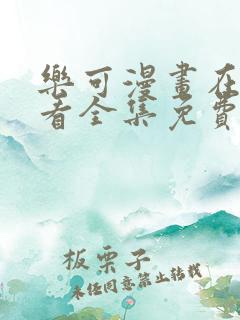 樂可漫畫在
看全集免費
板栗子
未经同意禁止转载